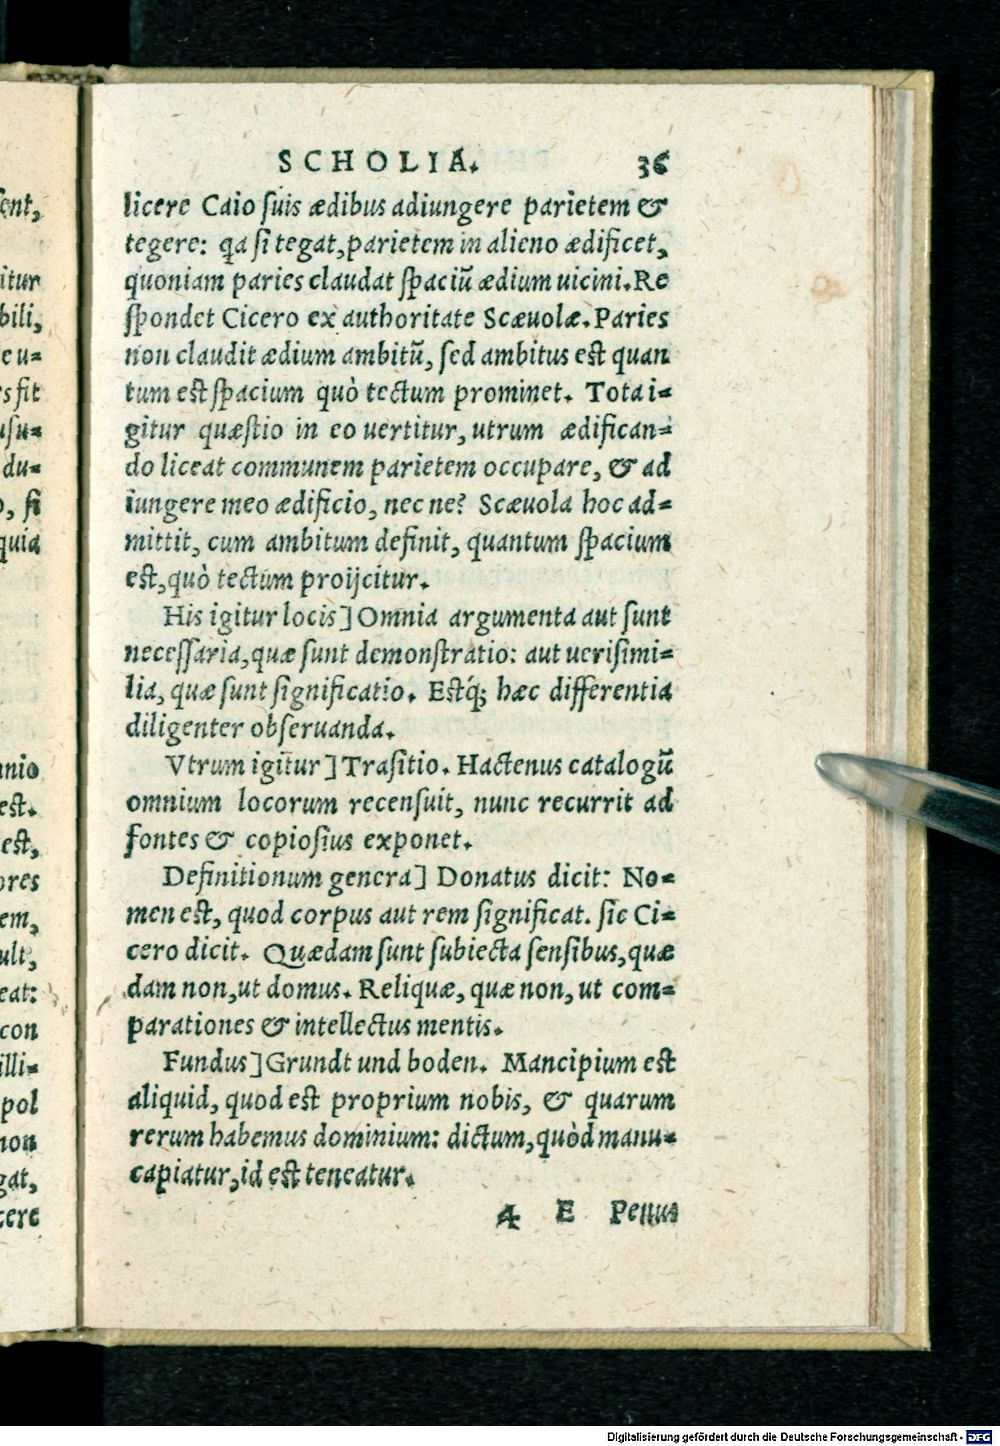 SCHOLIA. 36
licere Caio suis ædibus adiungere parietem &
tegere: qa si tegat, parietem in alieno ædificet,
quoniam paries claudat spaciũ ædium uicini. Re
spondet Cicero ex authoritate Scæuolæ. Paries
non claudit ædium ambitũ, sed ambitus est quan
tum est spacium quò tectum prominet. Tota i=
gitur quæstio in eo uertitur, utrum ædifican=
do liceat communem parietem occupare, & ad
iungere meo ædificio, nec ne? Scæuola hoc ad=
mittit, cum ambitum definit, quantum spacium
est, quò tectum proijcitur.
His igitur locis] Omnia argumenta aut sunt
necessaria, quæ sunt demonstratio: aut uerisimi=
lia, quæ sunt significatio. Estq́; hæc differentia
diligenter obseruanda.
Vtrum igitur] Trasitio. Hactenus catalogũ
omnium locorum recensuit, nunc recurrit ad
fontes & copiosius exponet.
Definitionum genera] Donatus dicit: No=
men est, quod corpus aut rem significat. sic Ci=
cero dicit. Quædam sunt subiecta sensibus, quæ
dam non, ut domus. Reliquæ, quæ non, ut com=
parationes & intellectus mentis.
Fundus] Grundt und boden. Mancipium est
aliquid, quod est proprium nobis, & quarum
rerum habemus dominium: dictum, quòd manu=
capiatur, id est teneatur.
E Penus
itur
bili,
e u=
s fit
usu=
du=
, si
quia
nnio
est.
est,
ores
em,
ult,
eat:
con
illi=
pol
non
gat,
cere
Digitalisierung gefördert durch die Deutsche Forschungsgemeinschaft - DFG